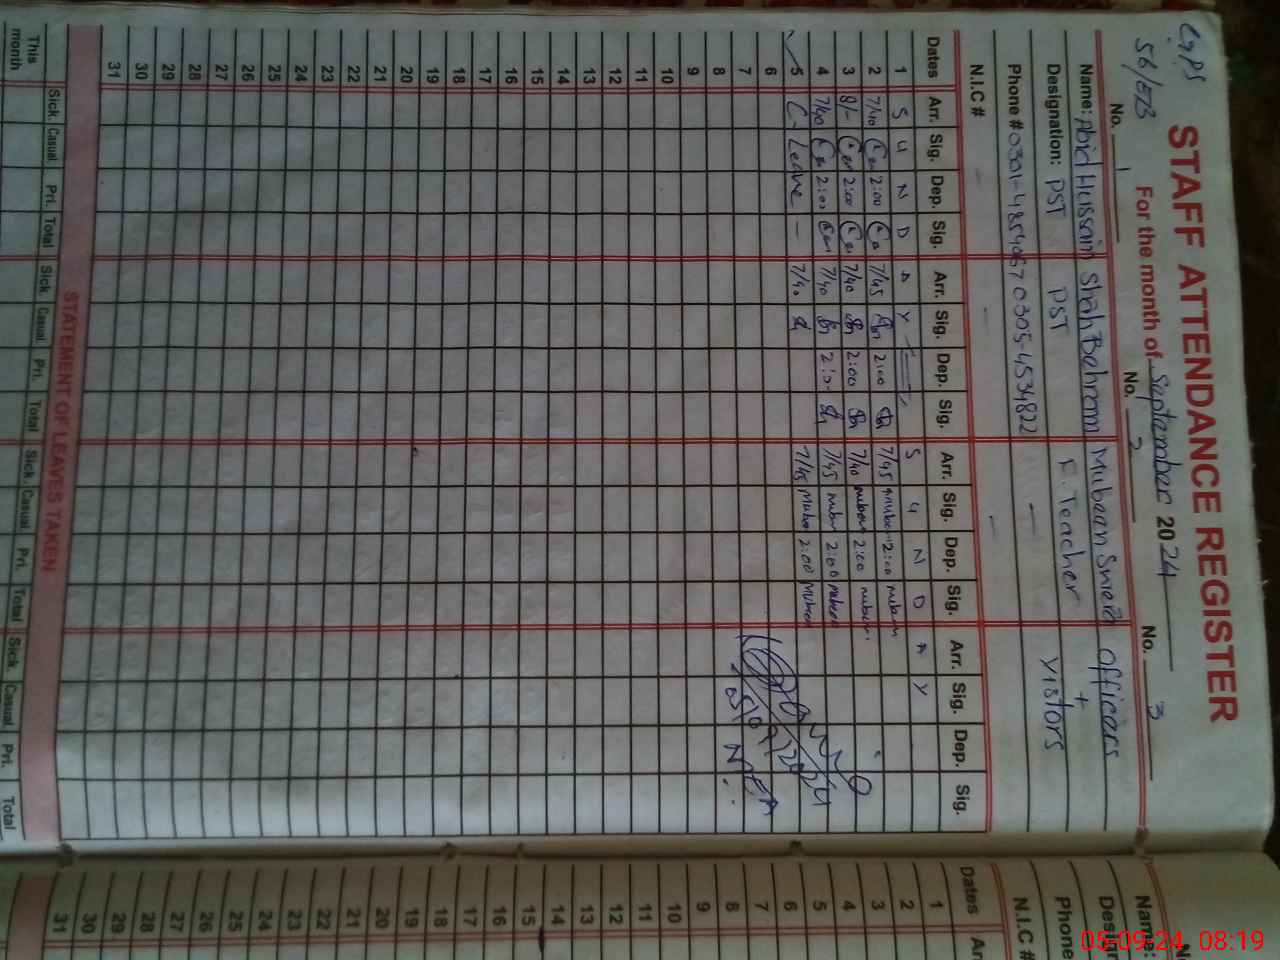 GPS
56/EB
STAFF ATTENDANCE REGISTER
For the month of September 2024
No. 1 No. 2 No. 3
Name: Abid Hussain Shah Behram Mubeen officers
Designation: PST PST F. Teacher + Vistors
Phone # 0305-4534822 —
N.I.C # - - -
Dates Arr. Sig. Dep. Sig. Arr. Sig. Dep. Sig. Arr. Sig. Dep. Sig. Arr. Sig. Dep. Sig.
1 S U N D A Y S U N D A Y
2 7/40 2:00 7/45 2:00 7/45 2:00
3 8/- 2:00 7/40 2:00 7/40 2:00
4 7/40 2:00 7/40 2:0- 7/45 2:00
5 C- Leave - 7/40 7/45 2:00
6
7
8
9
10
11
12
13
14
15
16
17
18
19
20
21
22
23
24
25
26
27
28
29
30
31
05/09/2024
STATEMENT OF LEAVES TAKEN
Sick. Casual. Pri. Total Sick. Casual. Pri. Total Sick. Casual. Pri. Total Sick. Casual. Pri. Total
This month
Name:
Phone
N.I.C #
Dates
1
2
3
4
5
6
7
8
9
10
11
12
13
14
15
16
17
18
19
20
21
22
23
24
25
26
27
28
29
30
31
05-09-24 08:19